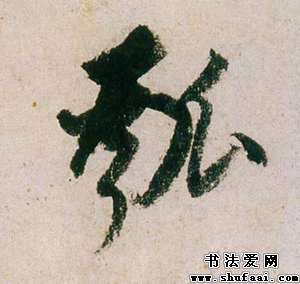 瓠
书法爱网
www.shufaai.com